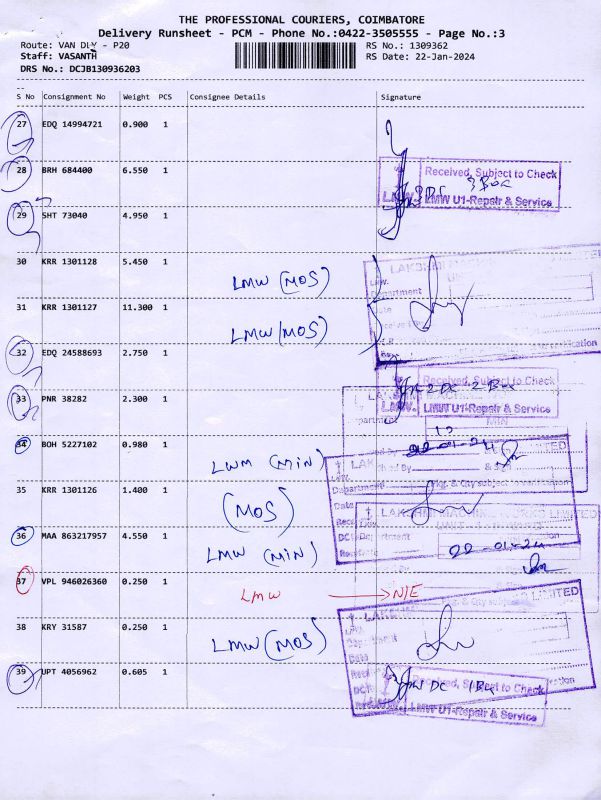 THE PROFESSIONAL COURIERS, COIMBATORE
Delivery Runsheet - PCM - Phone No.:0422-3505555 - Page No.:3
Route: VAN DLY - P20
RS No.: 1309362
Staff: VASANTH
RS Date: 22-Jan-2024
DRS No.: DCJB130936203
S No Consignment No Weight PCS Consignee Details Signature
27 EDQ 14994721 0.900 1
28 BRH 684400 6.550 1
Received, Subject to Check
3 Box
LMW. LMW U1-Repair & Service
29 SHT 73040 4.950 1
30 KRR 1301128 5.450 1
LMW (MOS)
31 KRR 1301127 11.300 1
LMW (MOS)
32 EDQ 24588693 2.750 1
Received, Subject to Check
2 DC 2 Box
33 PNR 38282 2.300 1
LMW. LMW U1-Repair & Service
34 BOH 5227102 0.980 1
LWM (MIN)
22-01-24
35 KRR 1301126 1.400 1
(MOS)
36 MAA 863217957 4.550 1
LMW (MIN)
22-01-24
37 VPL 946026360 0.250 1
LMW → N/E
38 KRY 31587 0.250 1
LMW (MOS)
39 UPT 4056962 0.605 1
Received, Subject to Check
DC 1 Box
LMW U1-Repair & Service